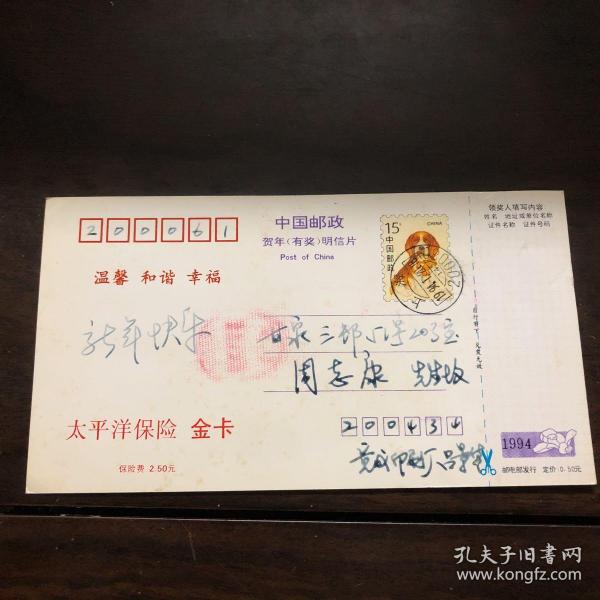 领奖人填写内容
姓名 地址或单位名称
证件名称 证件号码
200061
中国邮政
贺年(有奖)明信片
Post of China
15分
CHINA
中国邮政
温馨 和谐 幸福
新年快乐
甘泉三邨
周志康 先生收
太平洋保险 金卡
保险费 2.50元
200434
1994
邮电部发行 定价:0.50元
孔夫子旧书网
www.kongfz.com